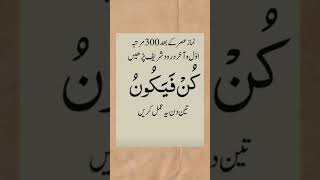 نماز عصر کے بعد 300 مرتبہ
اوّل و آخر درود شریف پڑھیں
كُنْ فَيَكُونُ
تین دن یہ عمل کریں